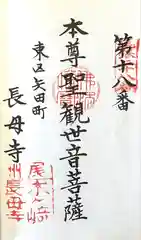 第十八番
本尊聖観世音菩薩
東区矢田町
長母寺
尾本ヶ崎
州長母寺